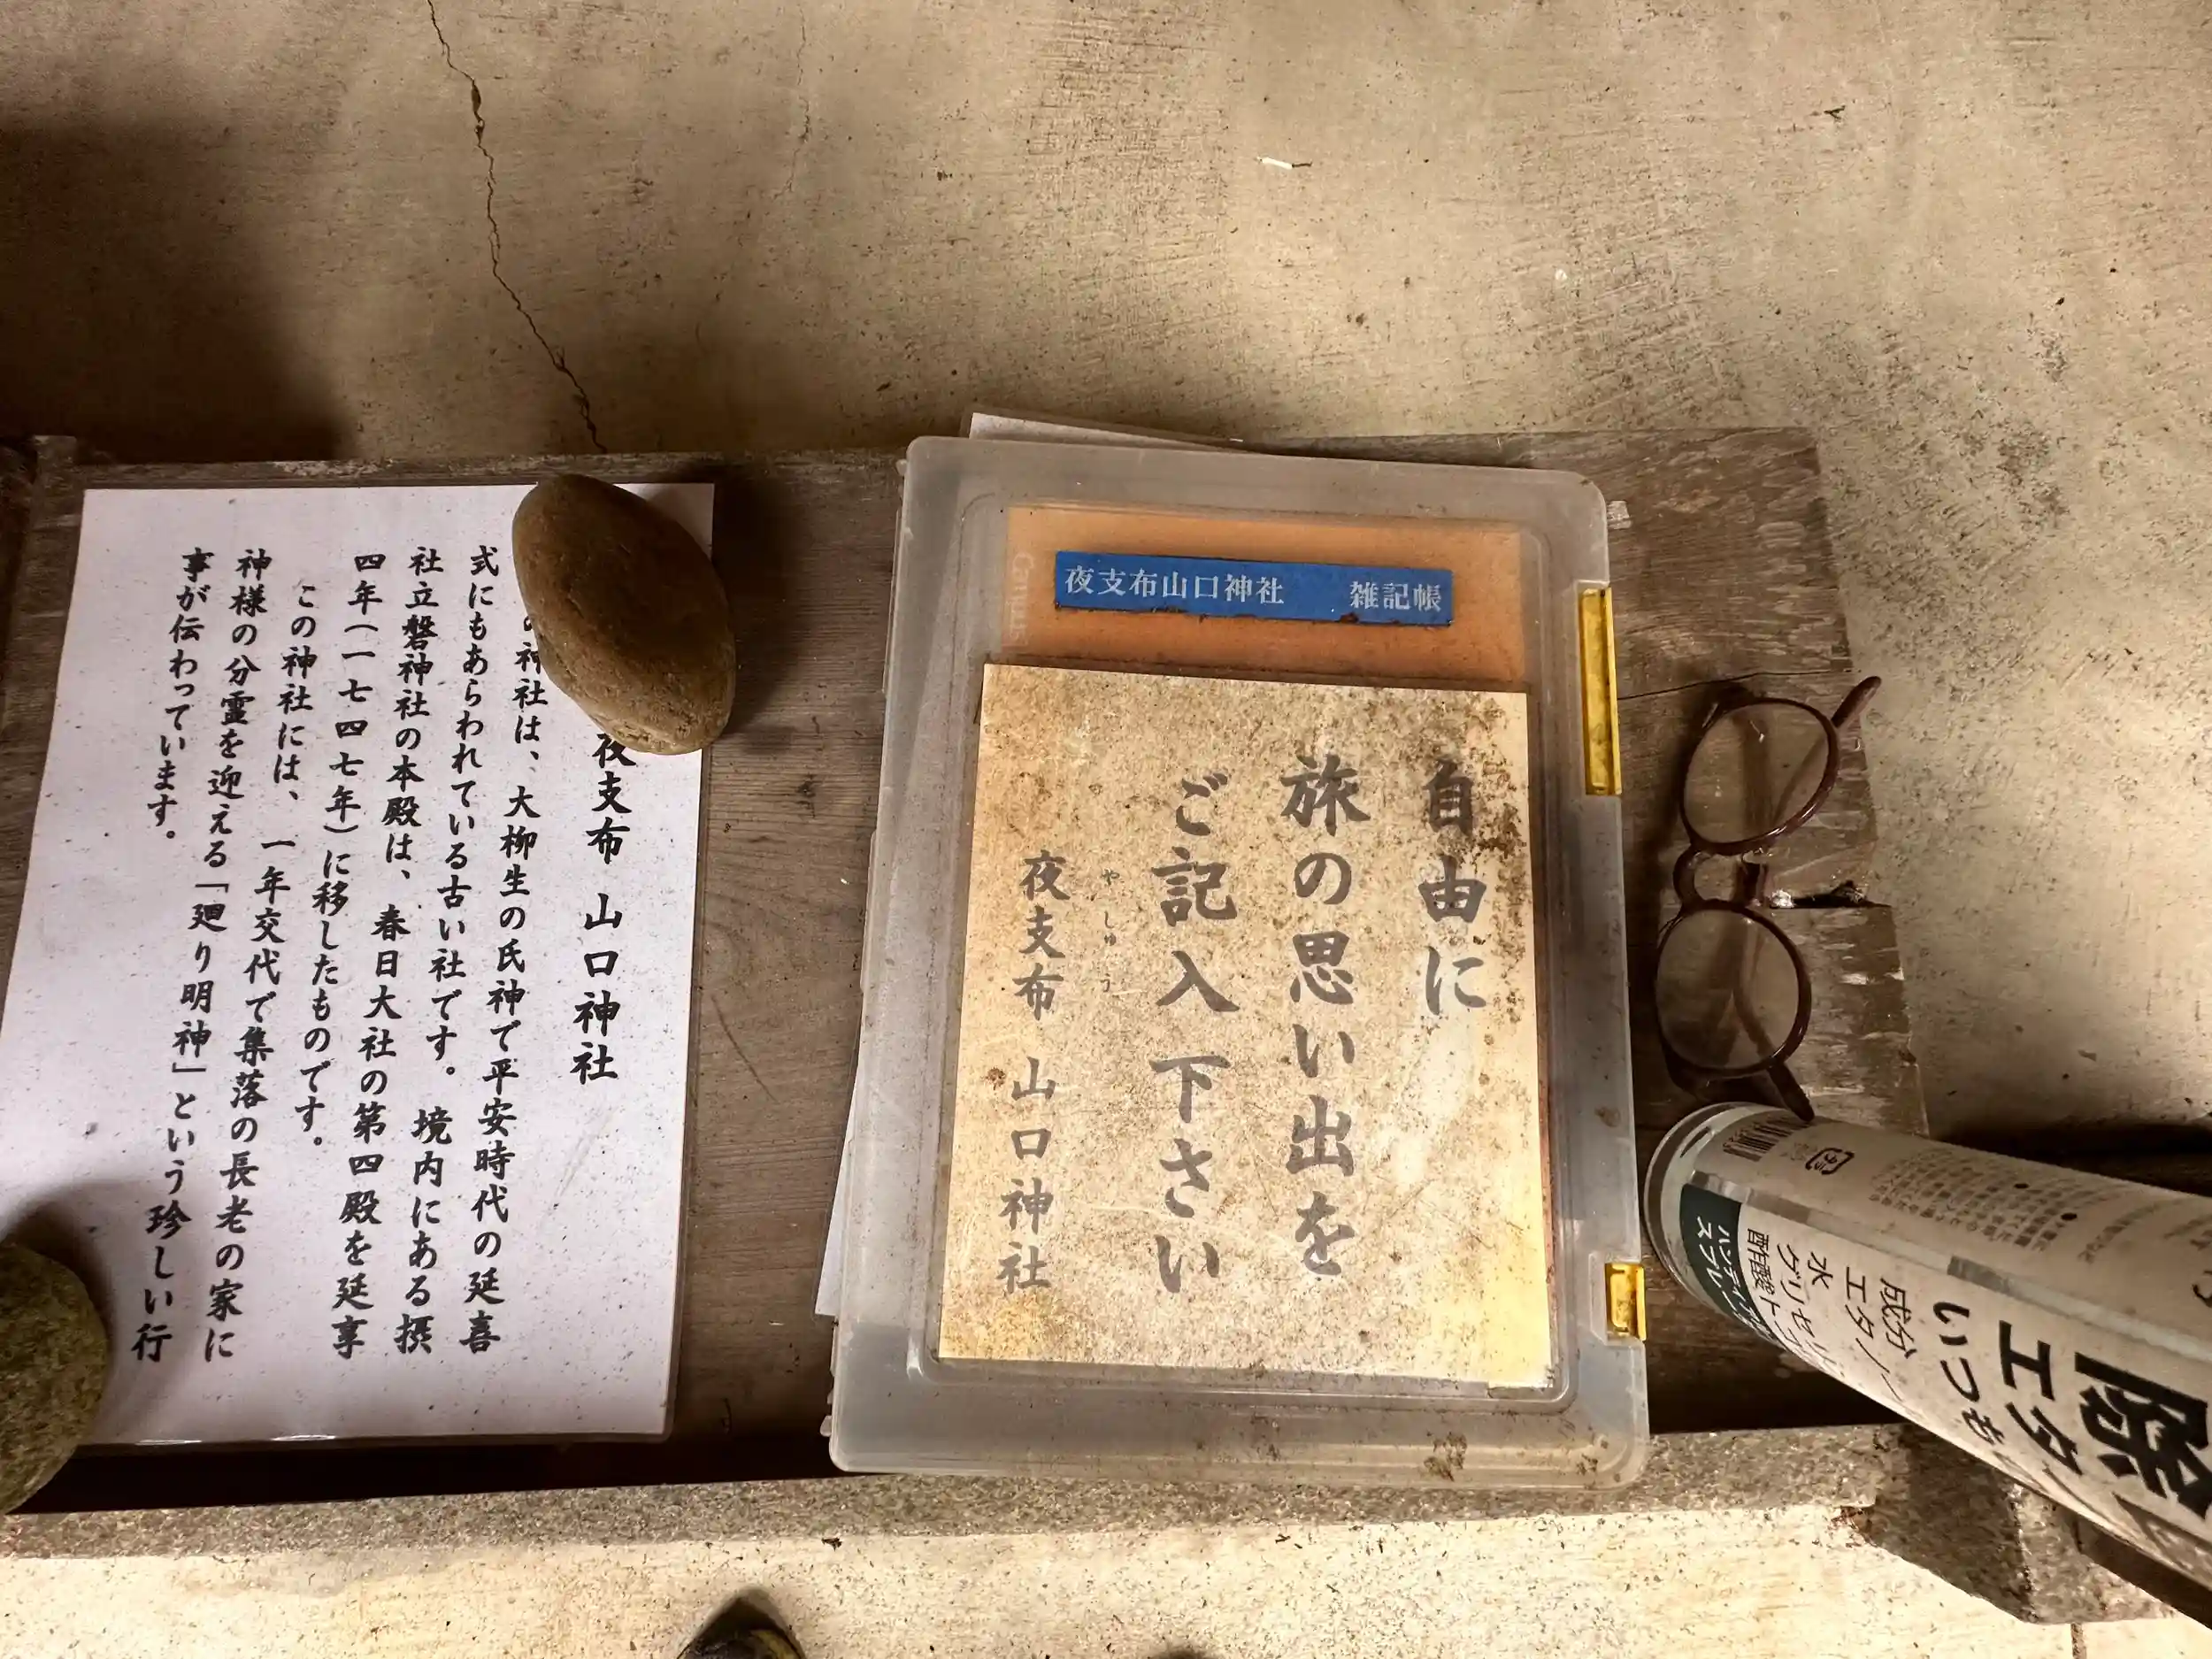 夜支布 山口神社
の神社は、大柳生の氏神で平安時代の延喜
式にもあらわれている古い社です。境内にある摂
社立磐神社の本殿は、春日大社の第四殿を延享
四年(一七四七年)に移したものです。
この神社には、一年交代で集落の長老の家に
神様の分霊を迎える「廻り明神」という珍しい行
事が伝わっています。
夜支布山口神社 雑記帳
Campus
自由に
旅の思い出を
ご記入下さい
やしゅう
夜支布 山口神社
除
エタ
いつも
成分
エタノ
水
グリセリ
酢酸ト
スプレー